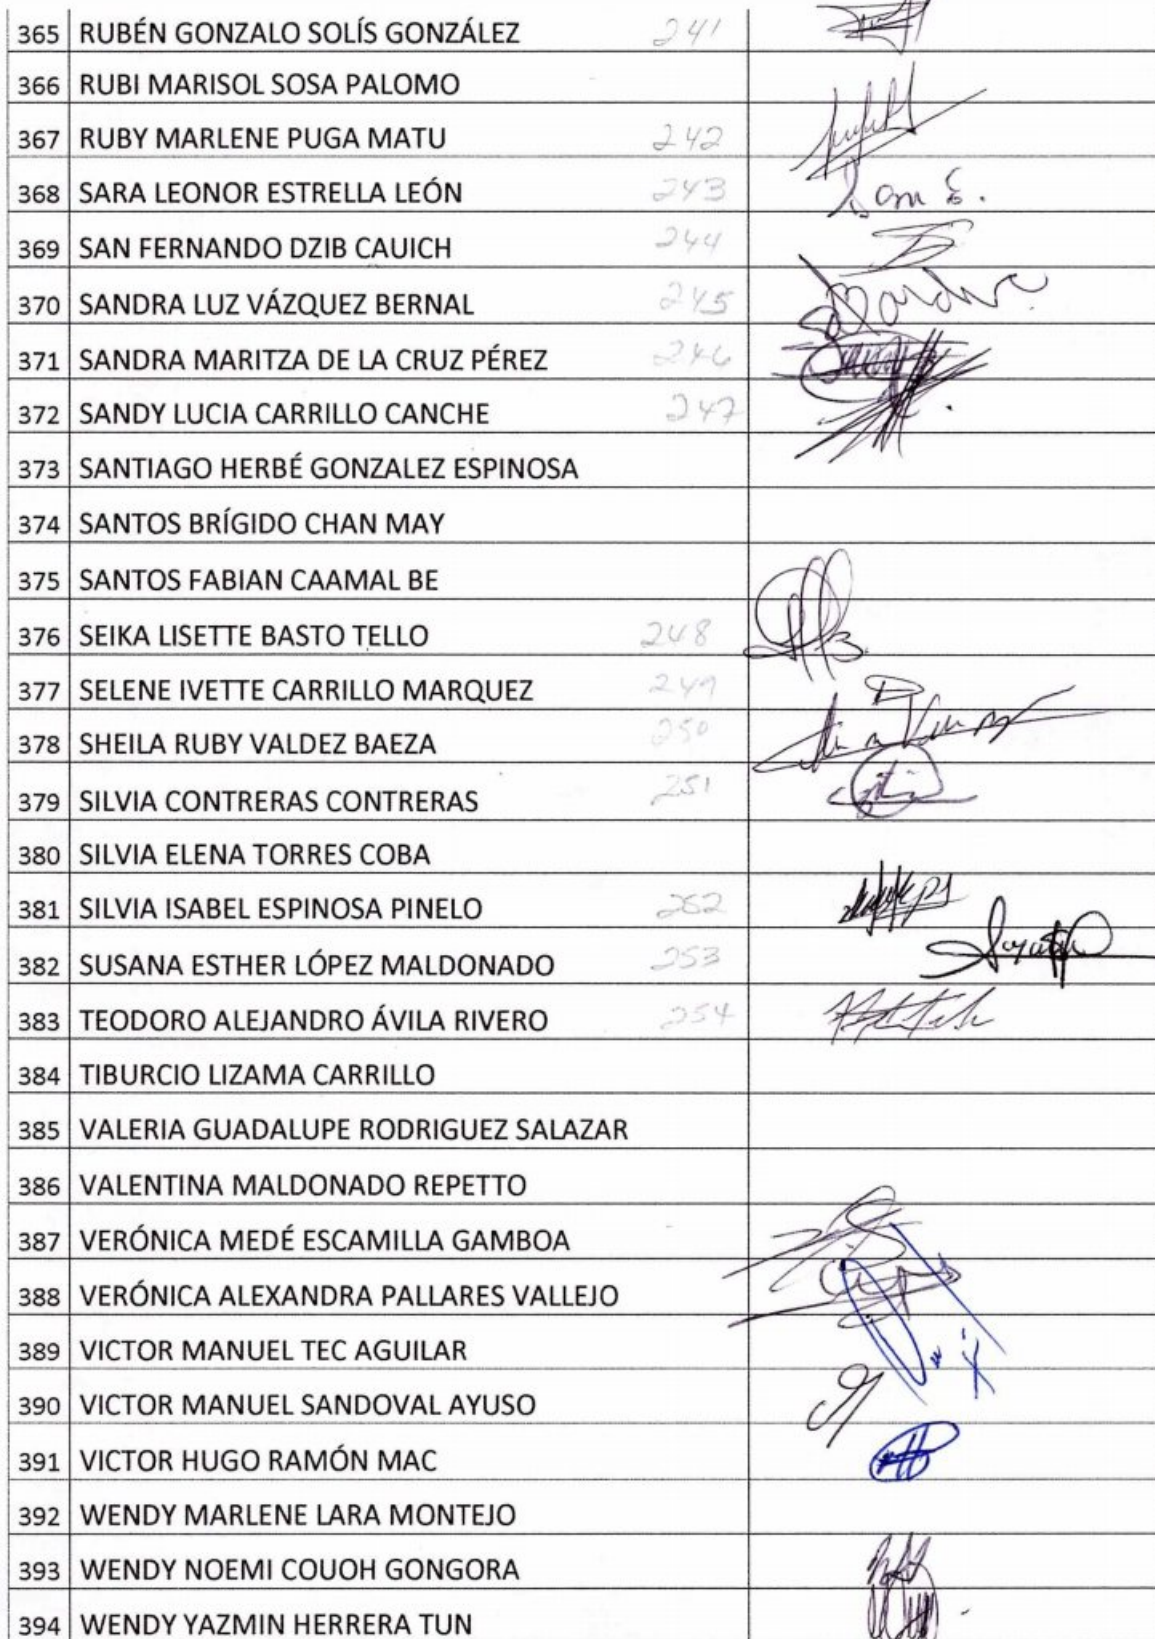 365 RUBÉN GONZALO SOLÍS GONZÁLEZ 241
366 RUBI MARISOL SOSA PALOMO
367 RUBY MARLENE PUGA MATU 242
368 SARA LEONOR ESTRELLA LEÓN 243
369 SAN FERNANDO DZIB CAUICH 244
370 SANDRA LUZ VÁZQUEZ BERNAL 245
371 SANDRA MARITZA DE LA CRUZ PÉREZ 246
372 SANDY LUCIA CARRILLO CANCHE 247
373 SANTIAGO HERBÉ GONZALEZ ESPINOSA
374 SANTOS BRÍGIDO CHAN MAY
375 SANTOS FABIAN CAAMAL BE
376 SEIKA LISETTE BASTO TELLO 248
377 SELENE IVETTE CARRILLO MARQUEZ 249
378 SHEILA RUBY VALDEZ BAEZA 250
379 SILVIA CONTRERAS CONTRERAS 251
380 SILVIA ELENA TORRES COBA
381 SILVIA ISABEL ESPINOSA PINELO 252
382 SUSANA ESTHER LÓPEZ MALDONADO 253
383 TEODORO ALEJANDRO ÁVILA RIVERO 254
384 TIBURCIO LIZAMA CARRILLO
385 VALERIA GUADALUPE RODRIGUEZ SALAZAR
386 VALENTINA MALDONADO REPETTO
387 VERÓNICA MEDÉ ESCAMILLA GAMBOA
388 VERÓNICA ALEXANDRA PALLARES VALLEJO
389 VICTOR MANUEL TEC AGUILAR
390 VICTOR MANUEL SANDOVAL AYUSO
391 VICTOR HUGO RAMÓN MAC
392 WENDY MARLENE LARA MONTEJO
393 WENDY NOEMI COUOH GONGORA
394 WENDY YAZMIN HERRERA TUN